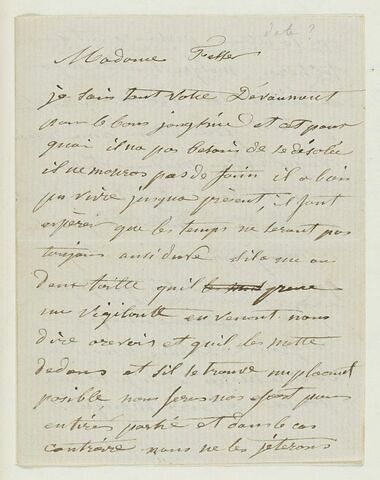 date ?
Madame Fesser
je sais tout votre Dévaument
pour le bons jongkind et cet pour
quoi il na pas besoin de se désolée
il ne mouras pas de faim il a bien
pu vivre jusqua présent, il faut
espérer que les temps ne seront pas
toujours ausi dure sil a une ou
deux toille quil prene
une Vigilante en venont nous
dire orevoir et quil les mette
dedans et sil se trouve un placment
posible nous ferons nos efort pour
en tirée partie et dans le cas
contraire nous ne les jèterons